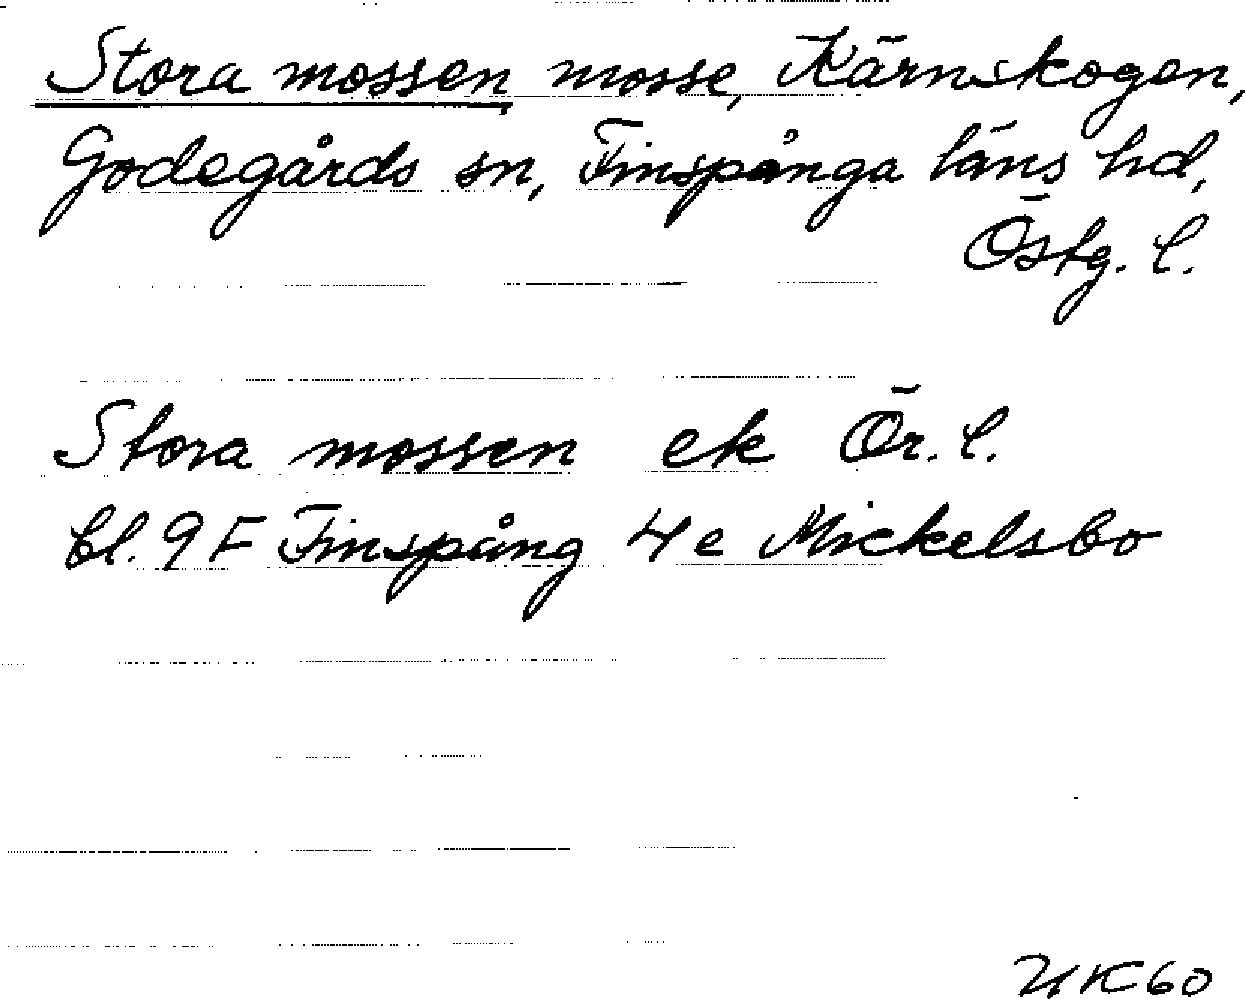 Stora mossen mosse, Kärnskogen,
Godegårds sn, Finspånga läns hd,
Östg. l.
Stora mossen ek Ör. l.
bl. 9 F Finspång 4 e Mickelsbo
HK60